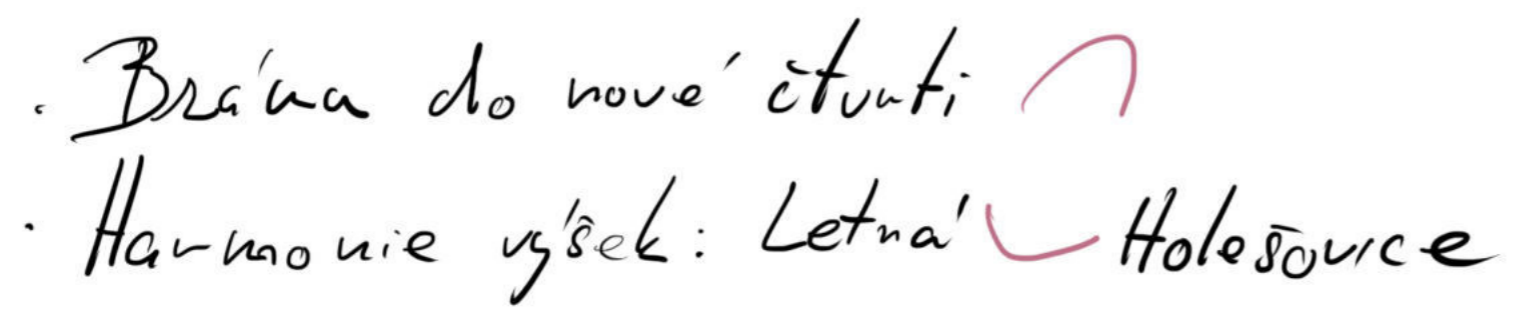 · Brána do nové čtvrti
· Harmonie výšek: Letná Holešovice